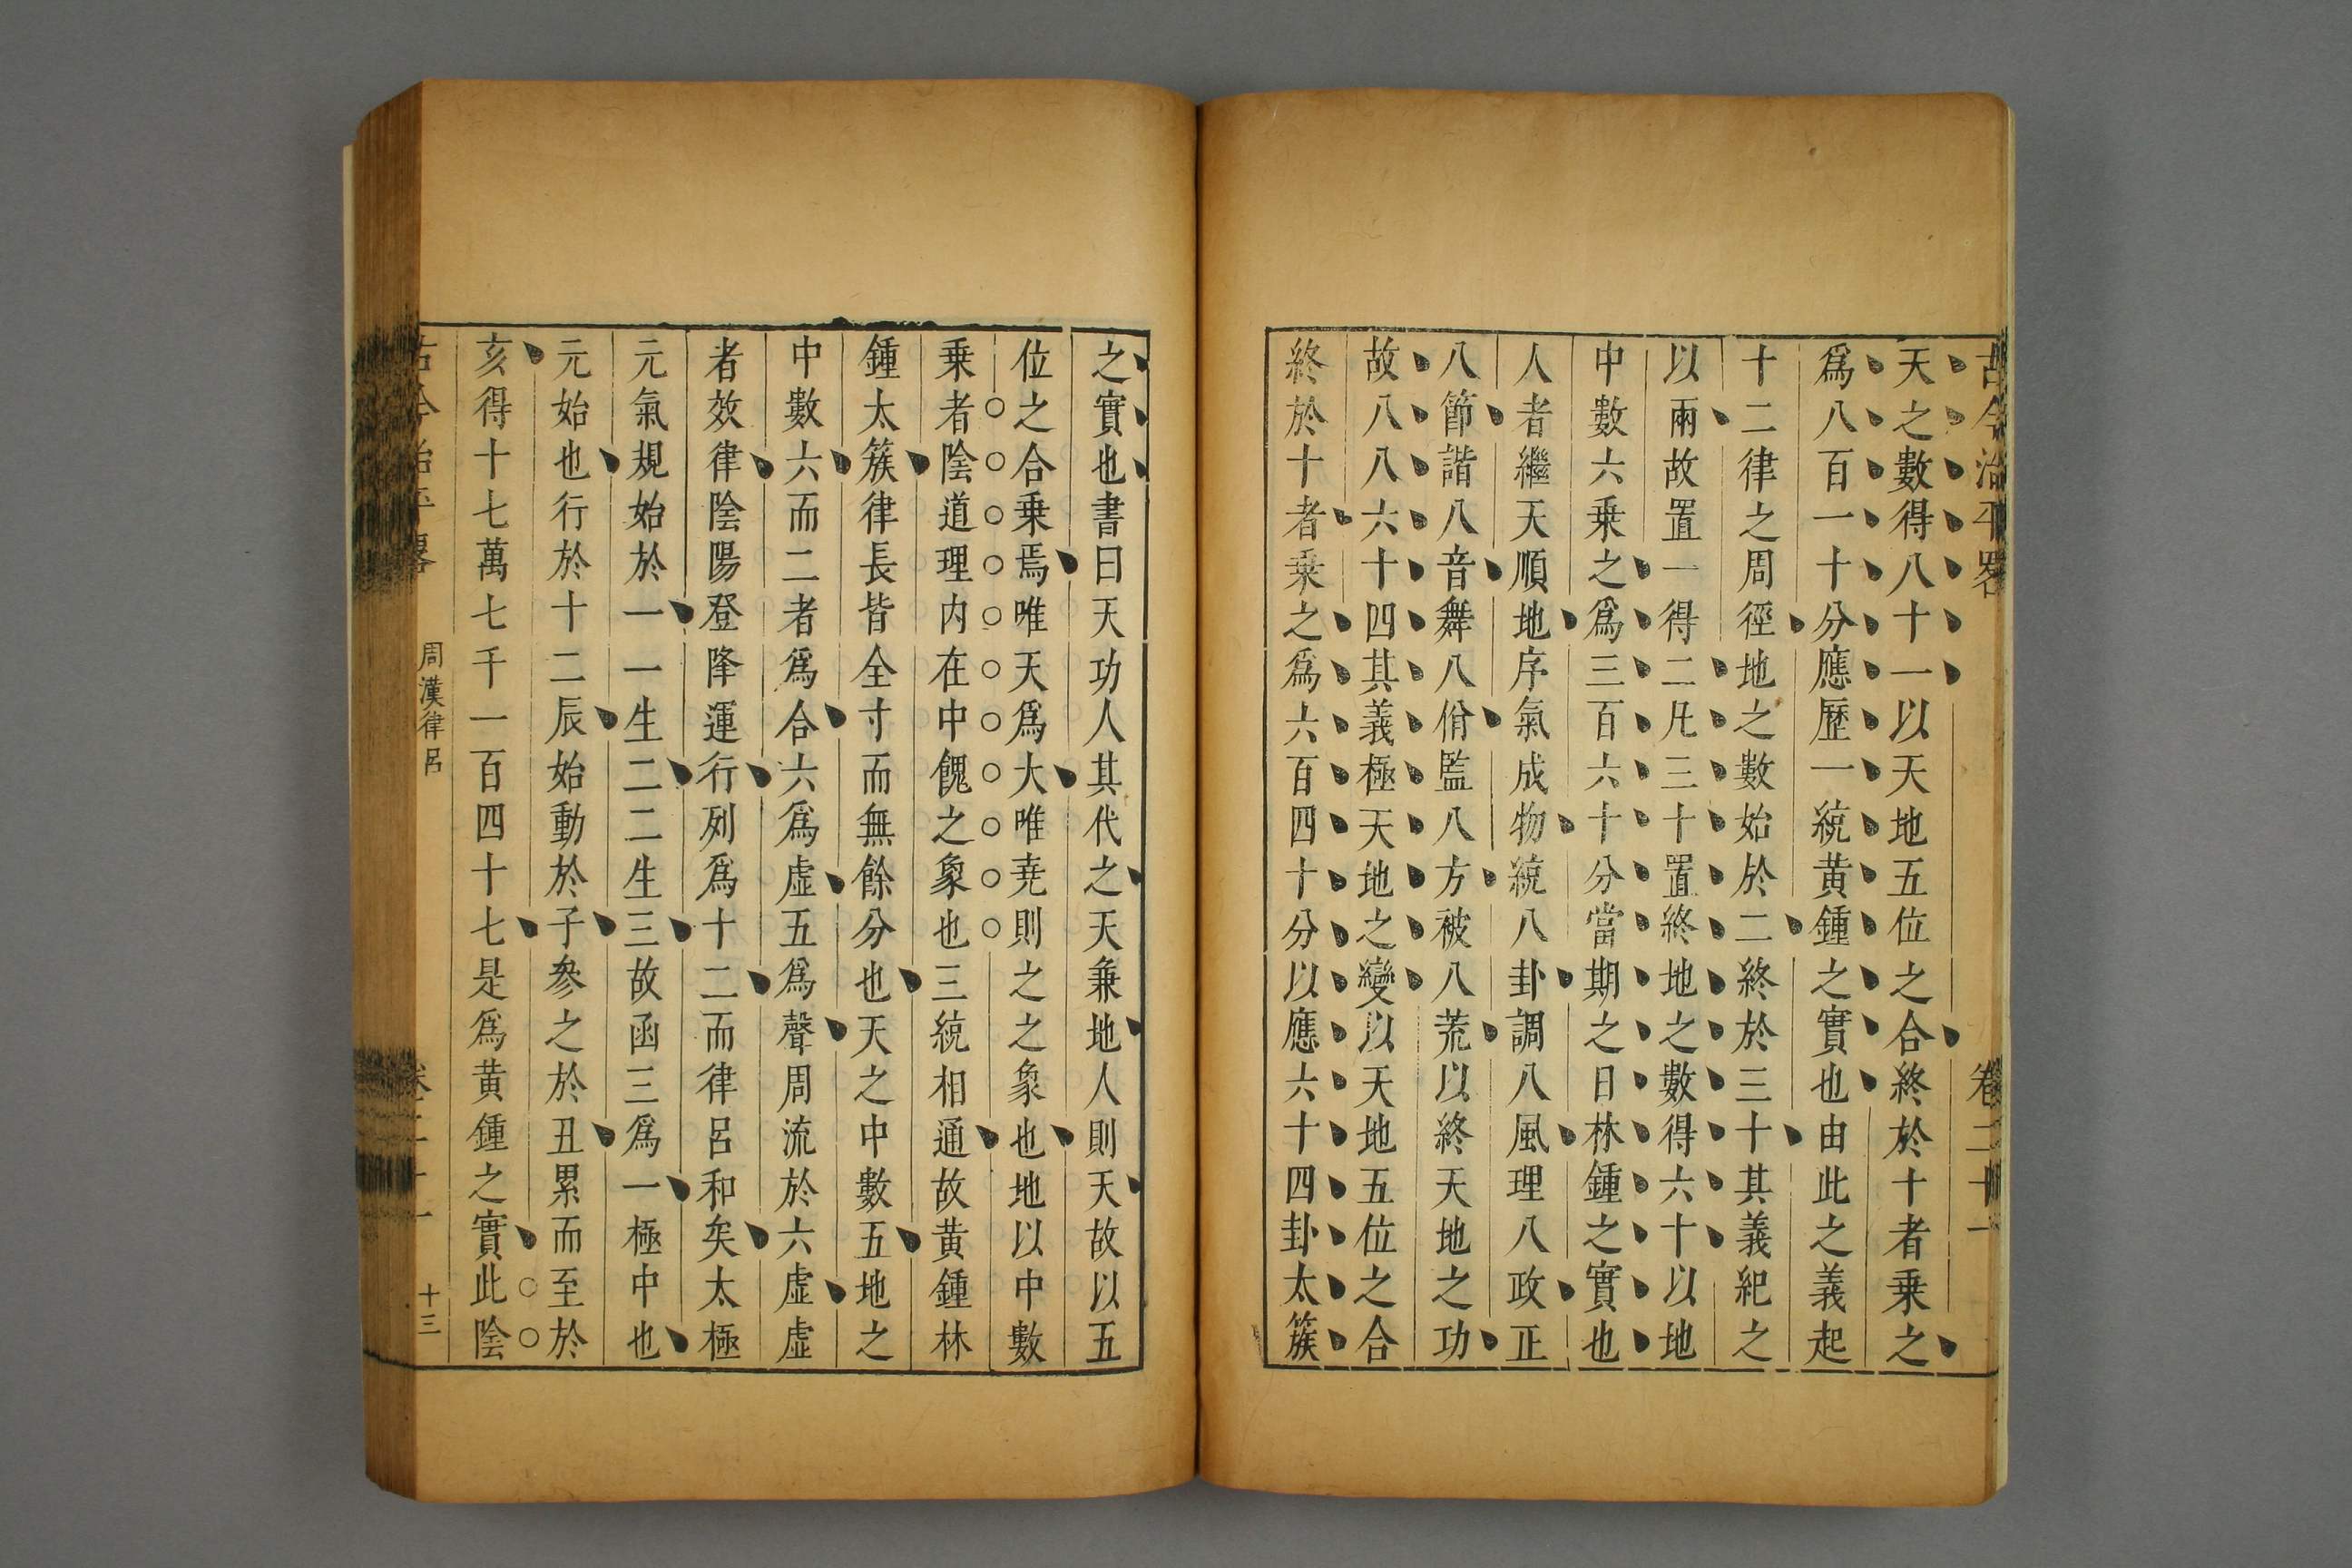 古今治平畧 卷二十一
天之數得八十一以天地五位之合終於十者乗之
爲八百一十分應歷一統黄鍾之實也由此之義起
十二律之周徑地之數始於二終於三十其義紀之
以兩故置一得二凡三十置終地之數得六十以地
中數六乗之爲三百六十分當期之日林鍾之實也
人者繼天順地序氣成物統八卦調八風理八政正
八節諧八音舞八佾監八方被八荒以終天地之功
故八八六十四其義極天地之變以天地五位之合
終於十者乗之爲六百四十分以應六十四卦太簇
之實也書曰天功人其代之天兼地人則天故以五
位之合乗焉唯天爲大唯尭則之之象也地以中數
乗者陰道理内在中餽之象也三統相通故黄鍾林
鍾太簇律長皆全寸而無餘分也天之中數五地之
中數六而二者爲合六爲虛五爲聲周流於六虛虛
者效律陰陽登降運行列爲十二而律呂和矣太極
元氣規始於一一生二二生三故函三爲一極中也
元始也行於十二辰始動於子參之於丑累而至於
亥得十七萬七千一百四十七是爲黄鍾之實此陰
古今治平畧 周漢律呂 卷二十一 十三